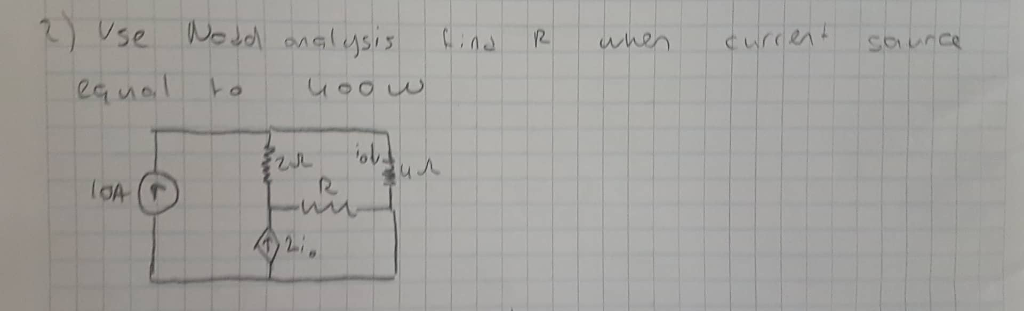 2) Use Nodd analysis find R when current source
equal to 400w
2Ω io↓ 4Ω
R
10A ↑
↑ 2io